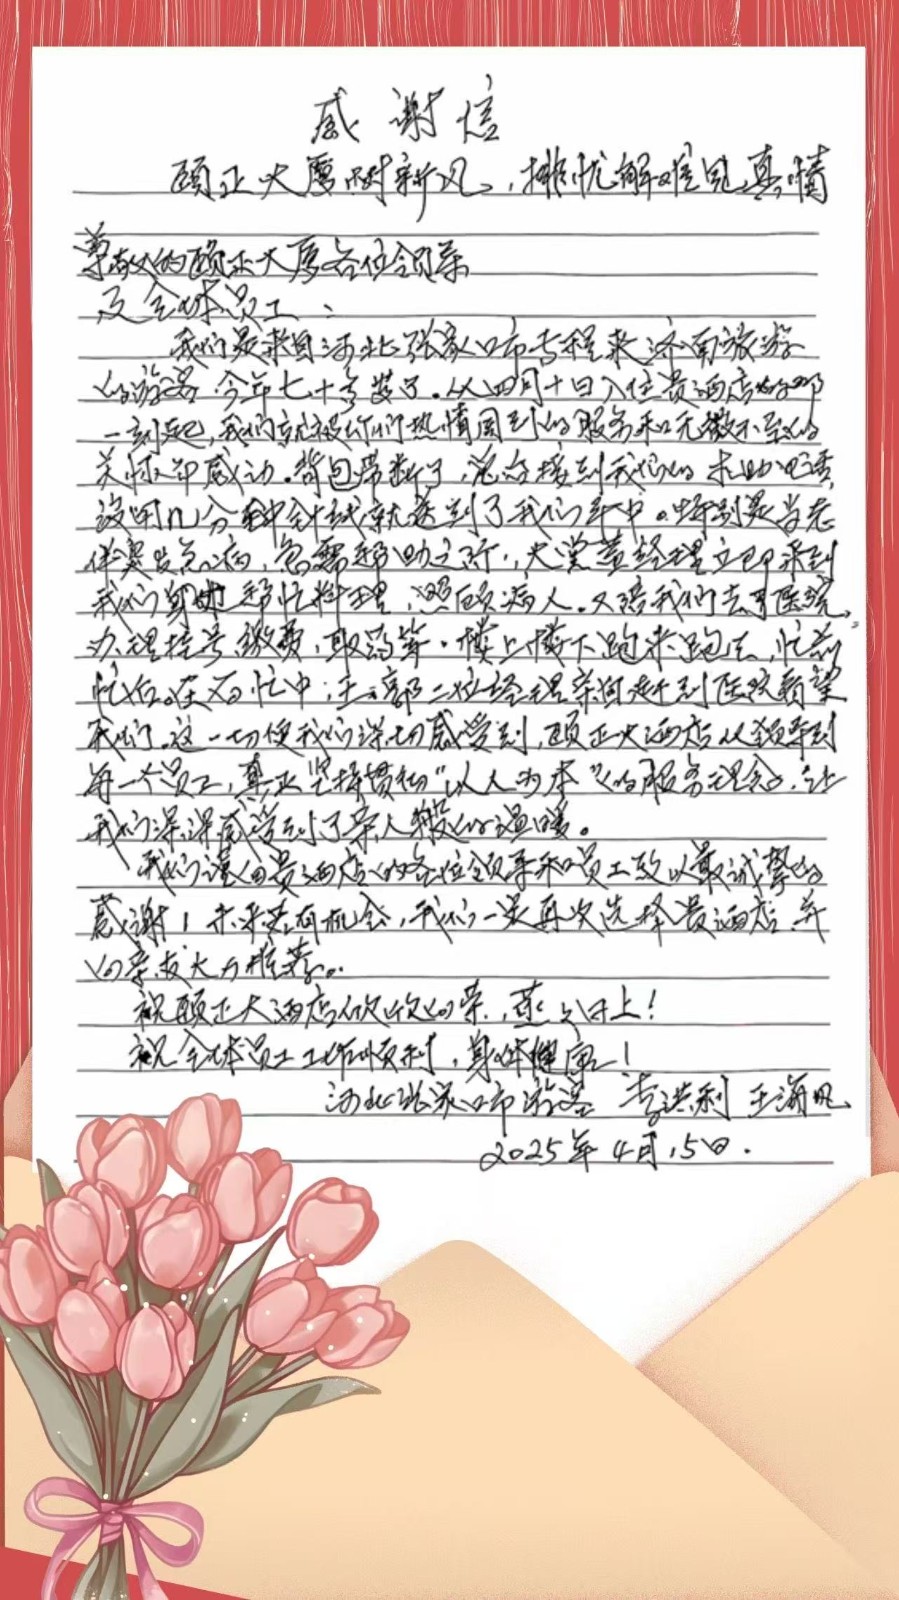 感谢信
颐正大厦树新风,排忧解难见真情
尊敬的颐正大厦各位领导
及全体员工:
我们是来自河北张家口市专程来济南旅游
的游客 今年七十多岁了。从四月十日入住贵酒店的那
一刻起,我们就被你们热情周到的服务和无微不至的
关怀所感动。背包带断了,总台接到我们的求助电话,
没用几分钟针线就送到了我们手中。特别是当老
伴突发疾病,急需帮助之际,大堂董经理立即来到
我们身边帮忙料理,照顾病人。又陪我们去了医院,
办理挂号缴费,取药等。楼上楼下跑来跑去,忙前
忙后。在百忙中,王、郭二位经理亲自赶到医院看望
我们。这一切使我们深切感受到,颐正大酒店从领导到
每一个员工,真正坚持贯彻“以人为本”的服务理念,让
我们深深感受到了亲人般的温暖。
我们谨向贵酒店的各位领导和员工致以最诚挚的
感谢!未来若有机会,我们一定再次选择贵酒店,并
向亲友大力推荐。
祝颐正大酒店欣欣向荣,蒸蒸日上!
祝全体员工工作顺利,身体健康!
河北张家口市游客 李洪利 王海
2025年4月15日.